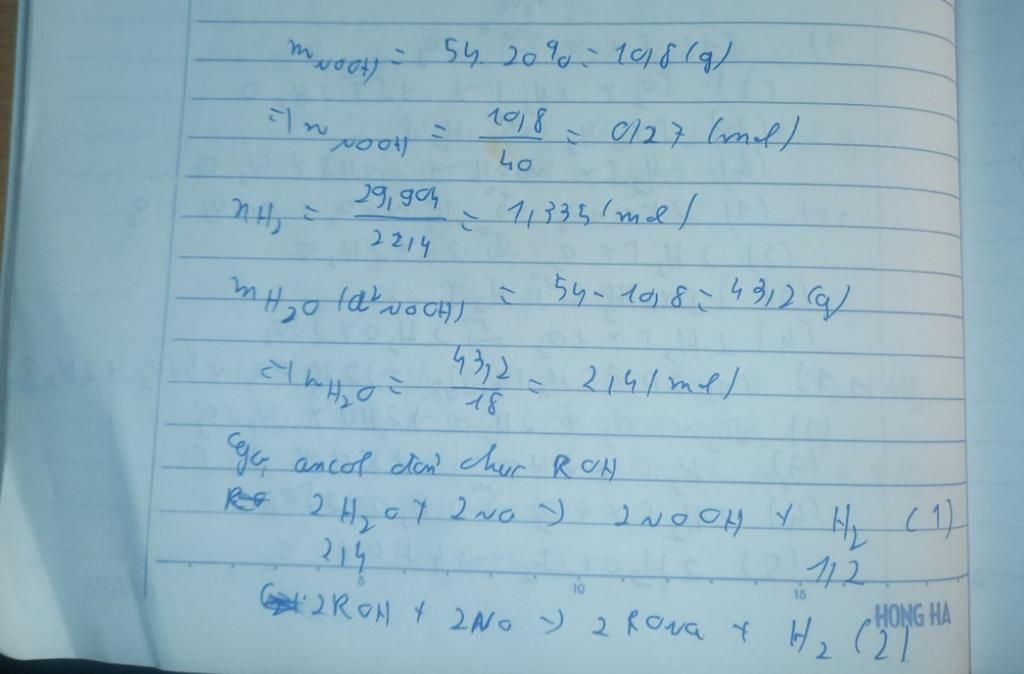 mNaOH = 54. 20% = 10,8 (g)
=> nNaOH = 10,8/40 = 0,27 (mol)
nH2 = 29,904/22,4 = 1,335 (mol)
mH2O (d² NaOH) = 54 - 10,8 = 43,2 (g)
=> nH2O = 43,2/18 = 2,4 (mol)
Gọi ancol đơn chức ROH
2H2O + 2Na -> 2NaOH + H2 (1)
2,4 1,2
5 10 15
2ROH + 2Na -> 2RONa + H2 (2)
HONG HA